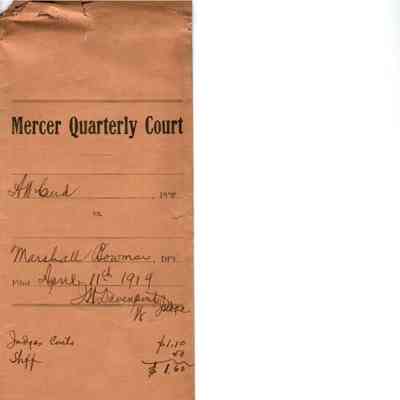 Mercer Quarterly Court
A W Curd, PFF
vs.
Marshall Bowmar, DFT
Filed April 11th 1919
Davenport
Judges Costs $1.10
Shff 50
$1.60